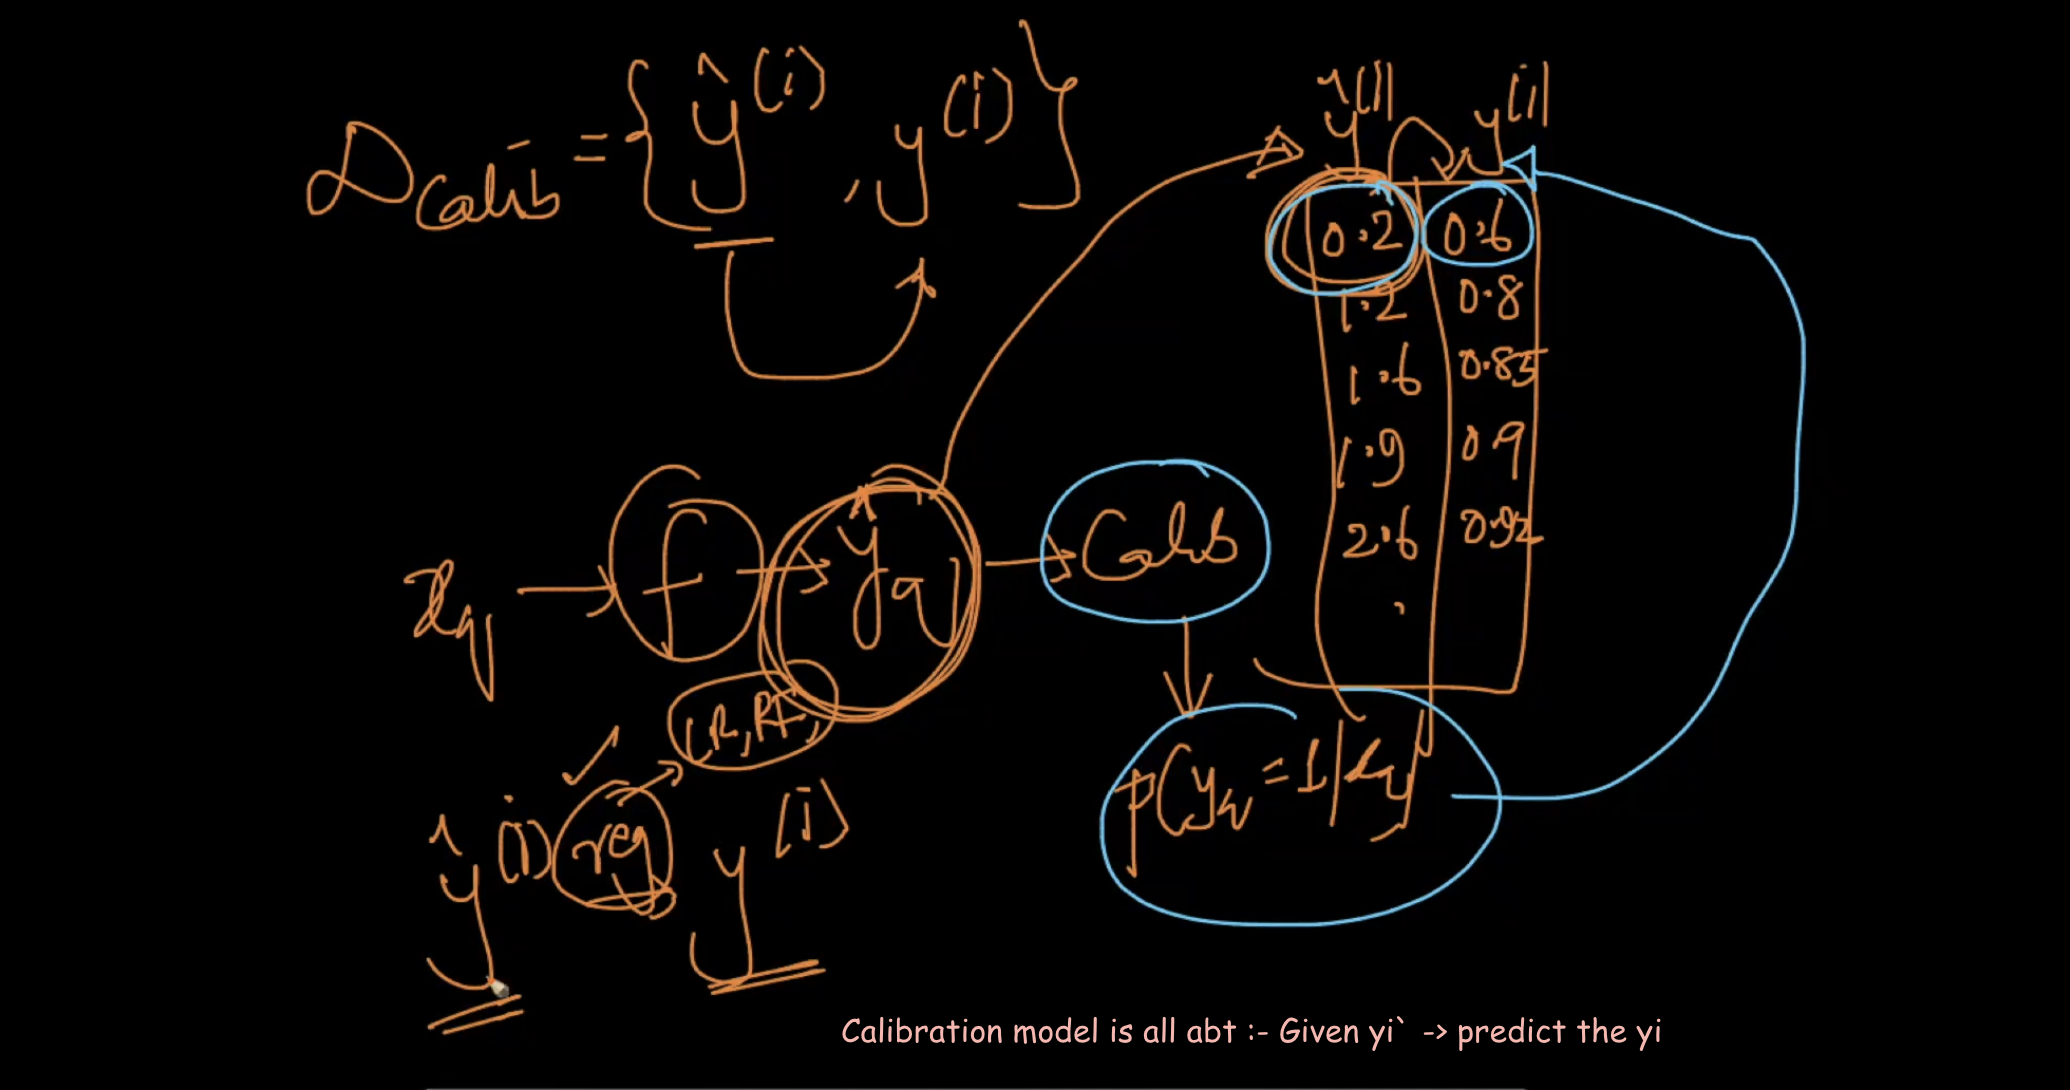 D_Calib = { ŷ^(i) , y^(i) }
ŷ^(i) y^(i)
0.2 0.6
1.2 0.8
1.6 0.85
1.9 0.9
2.6 0.92
x_q → f → ŷ_q → Calib
LR, RF,
P(y_q = 1 | x_q)
ŷ^(i) reg y^(i)
Calibration model is all abt :- Given yi` -> predict the yi